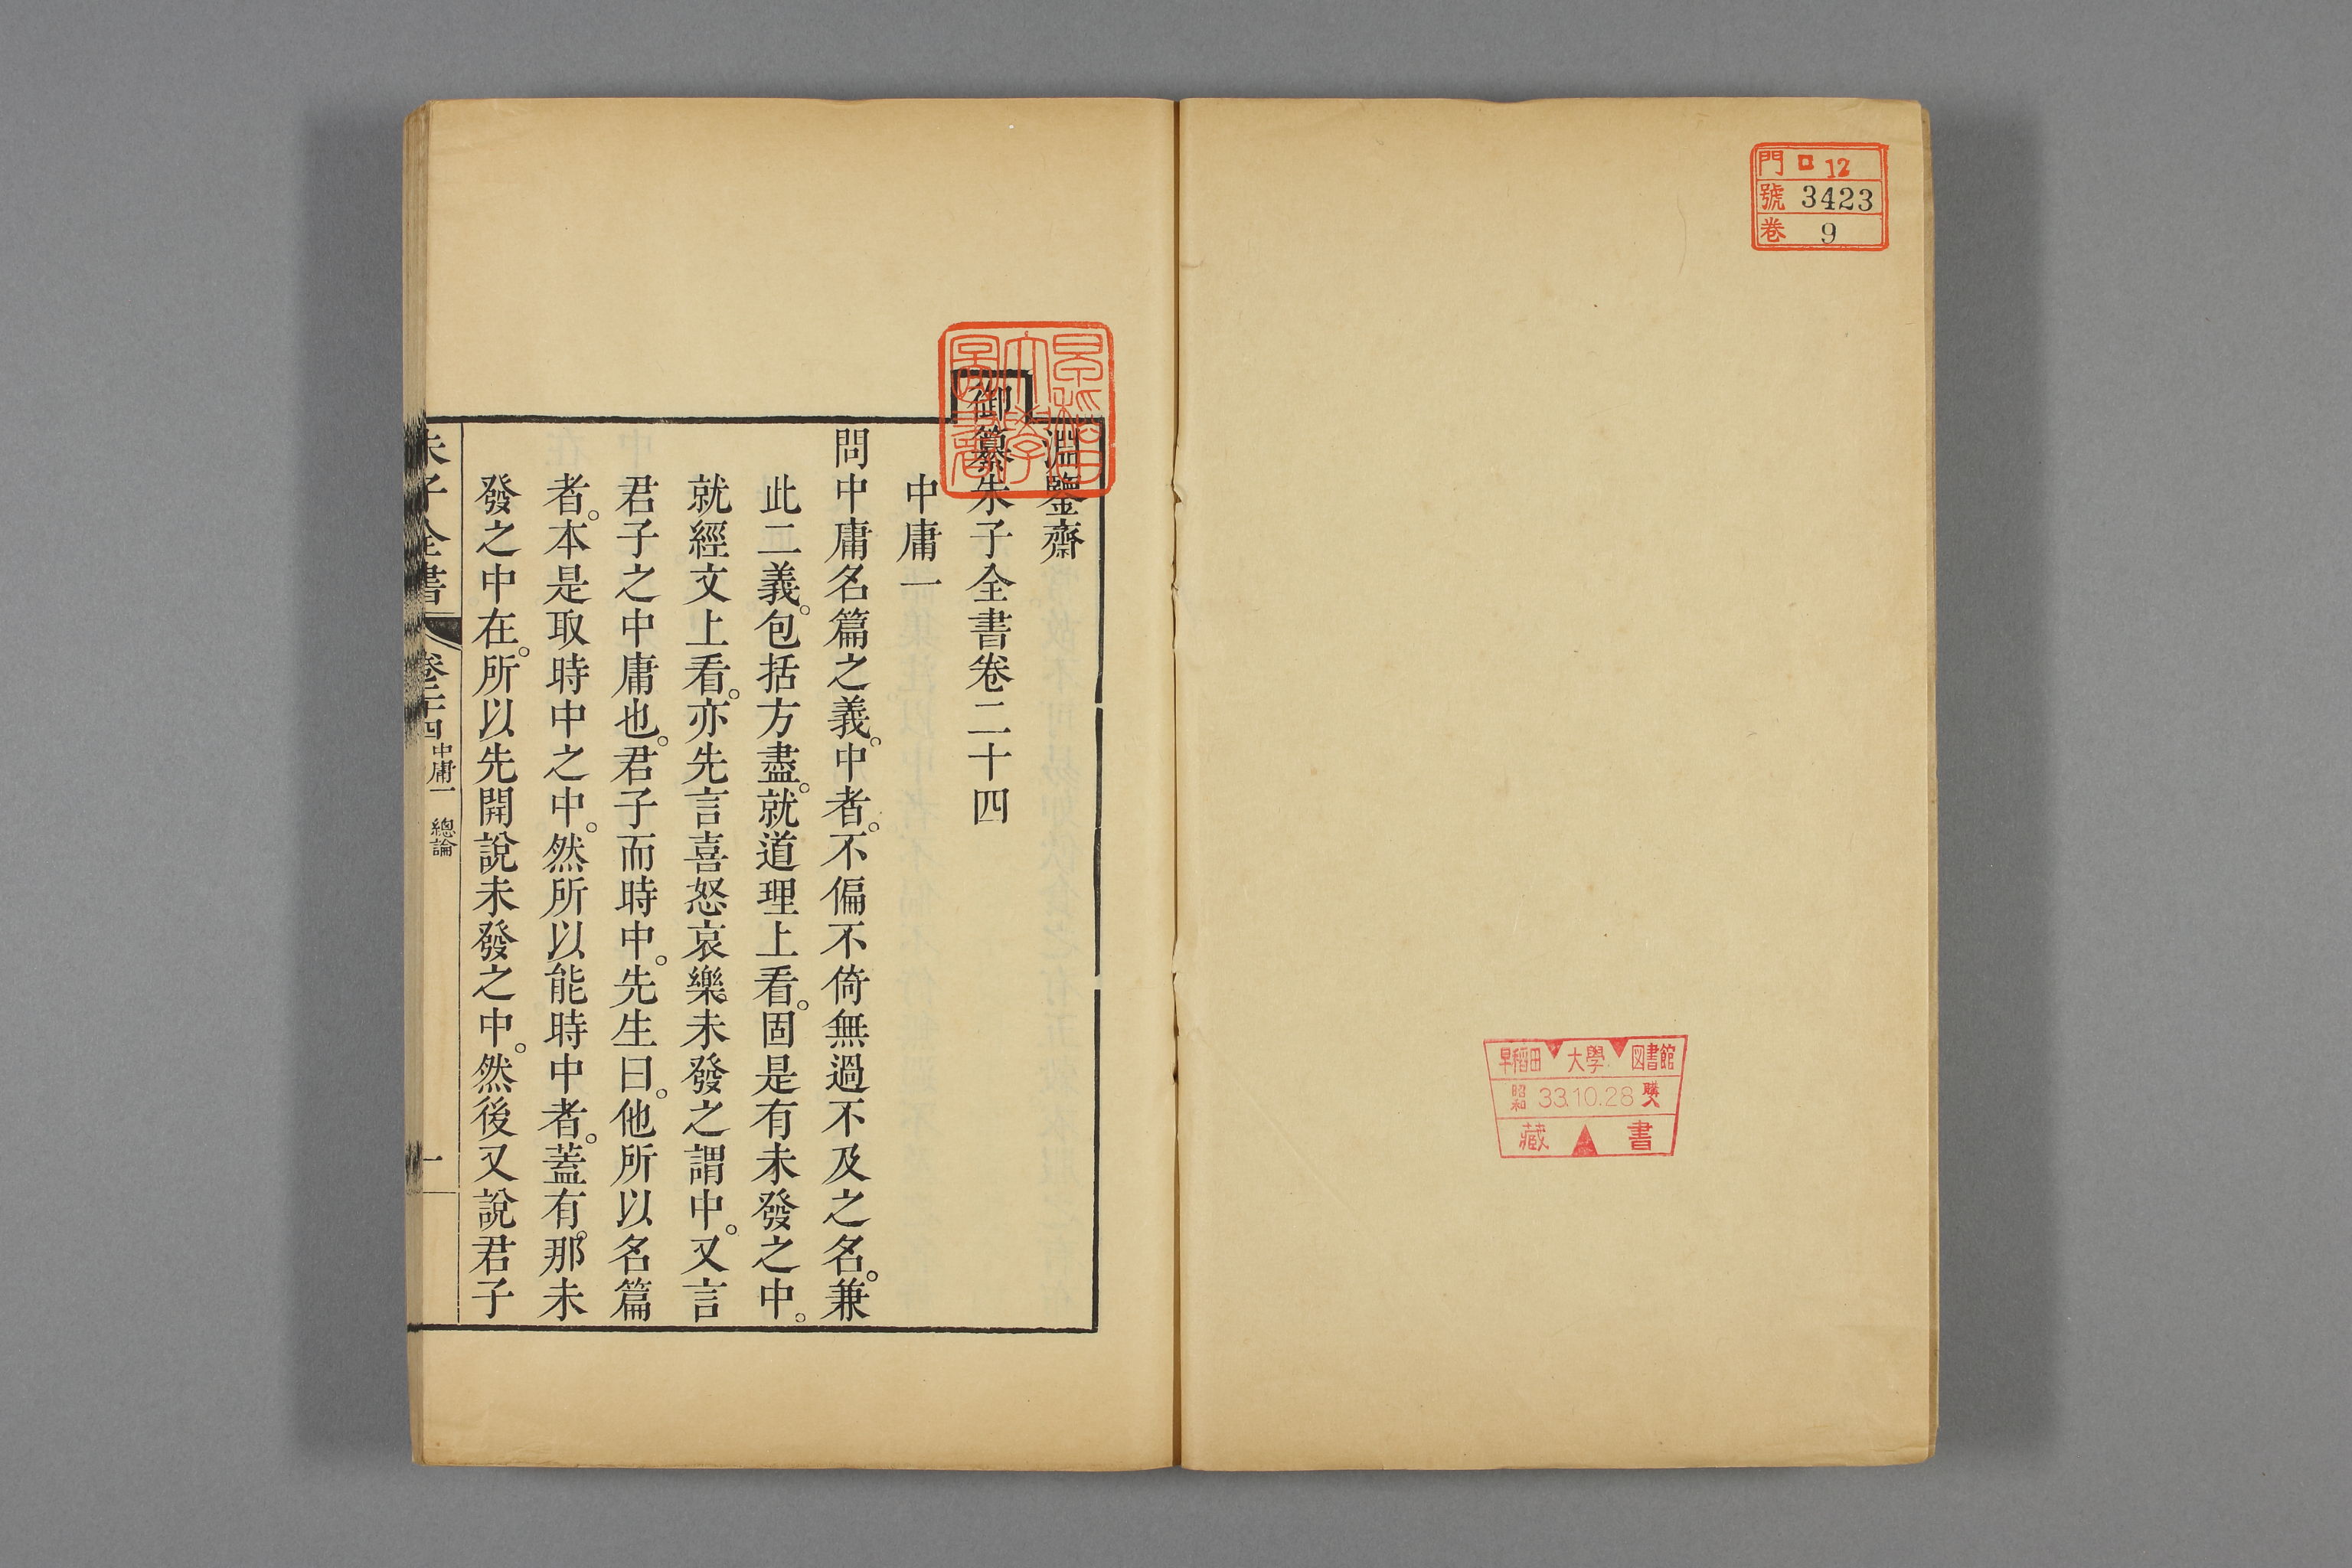 門 ロ 12
號 3423
卷 9
早稻田 大學 図書館
昭和 33.10.28 購入
藏書
早稻田大學圖書
淵鑒齋
御纂朱子全書卷二十四
中庸一
問中庸名篇之義。中者。不偏不倚無過不及之名。兼
此二義。包括方盡。就道理上看。固是有未發之中。
就經文上看。亦先言喜怒哀樂未發之謂中。又言
君子之中庸也。君子而時中。先生曰。他所以名篇
者。本是取時中之中。然所以能時中者。蓋有。那未
發之中在。所以先開說未發之中。然後又說君子
朱子全書 卷二十四 中庸一 總論 一